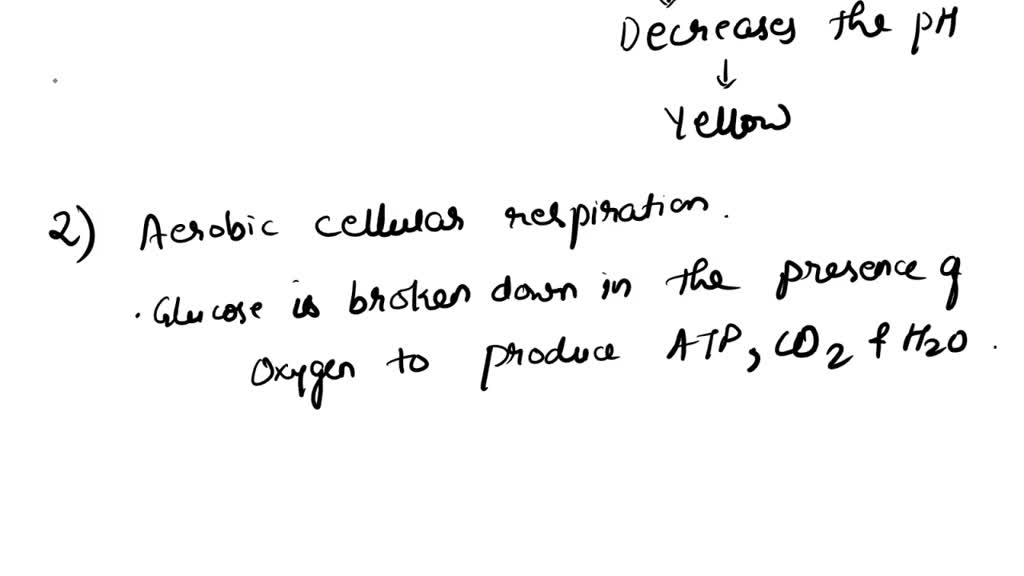 Decreases the pH
↓
Yellow
2) Aerobic cellular respiration.
. Glucose is broken down in the presence of
Oxygen to produce ATP, CO2 & H2O.